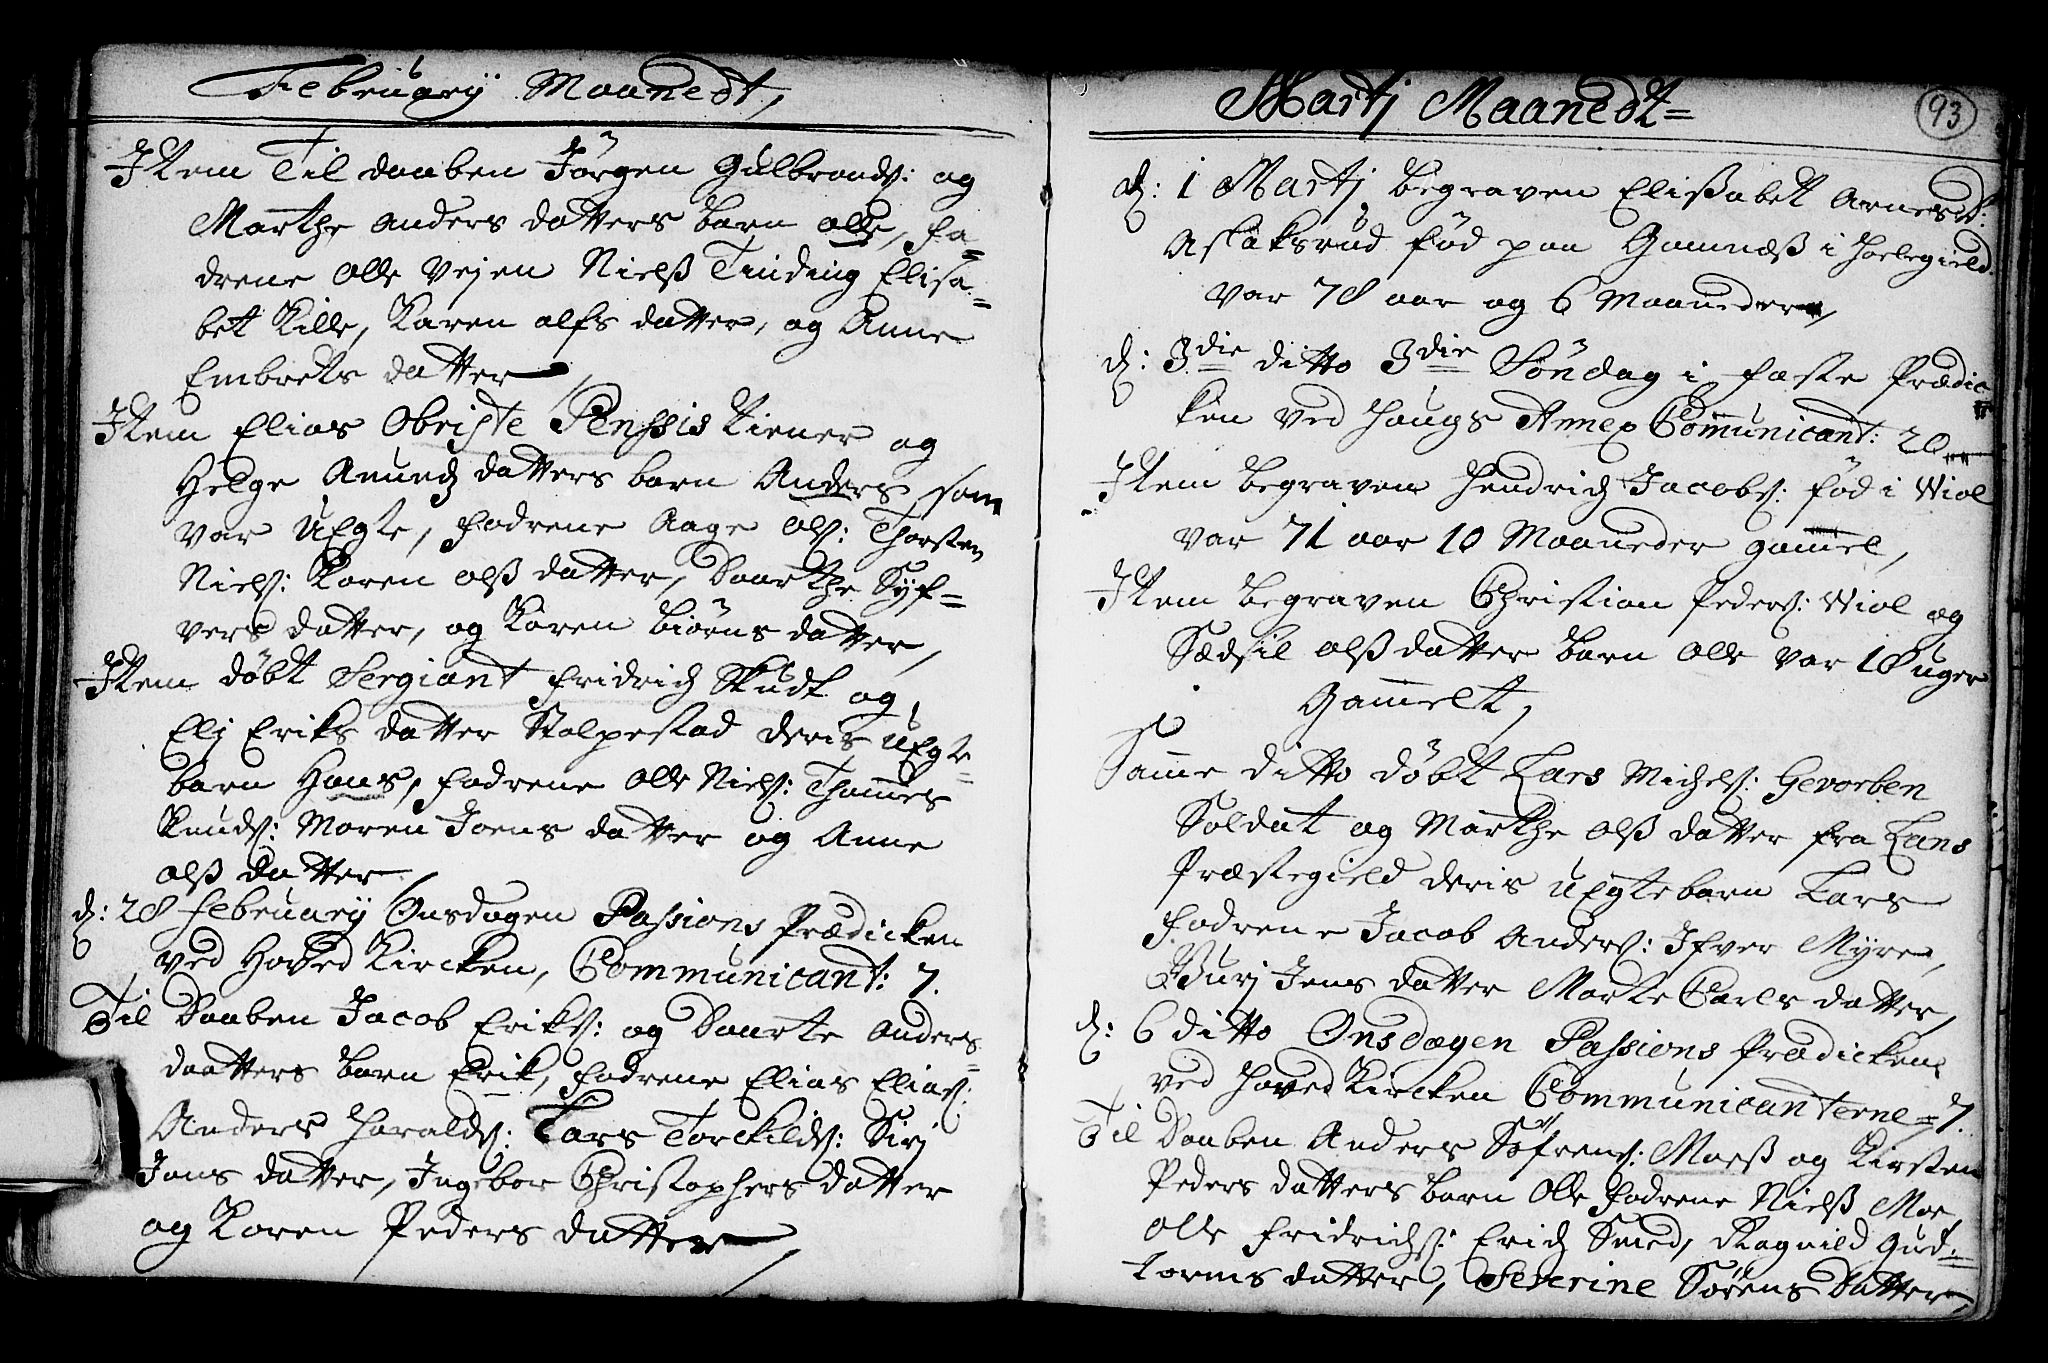 February Maanedt,
Item Til daaben Jörgen Gulbrands: og
Marthe Anders datters barn Olle, fa=
drene Olle Vejen Nielß Tinding Elisa=
bet Kille, Karen Alfs datter, og Anne
Embrets datter
Item Elias Obriste Penssis tiener og
Helge Amund datters barn Anders som
var uEgte, fadrene Aage Ols: Thorsten
Niels: Karen Olß datter, Daarthe Syf=
vers datter, og Karen Biörns datter,
Item döbt Sergiant Fridrich Skudt og
Eli Eriks datter Stolpestad deris uEgte=
barn Hans, fadrene Olle Niels: Thommes
Knuds: Maren Joens datter og Anne
Olß datter
d: 28 February Onsdagen Passions Prædicken
ved Hoved Kircken, Communicant: 7.
Til Daaben Jacob Eriks: og Daarte Anders=
daatters barn Erik, fadrene Elias Elias:
Anders Haralds: Lars Torckilds: Siri
Jons datter, Ingebor Christophers datter
og Karen Peders datter,
Martj Maanedt=
93
d: 1 Martj begraven Elißabet Arnesd:
Aslaksrud fød paa Gamnæß i Holegield
var 78 aar og 6 Maaneder,
d: 3die ditto 3die Söndag i faste Prædic=
ken ved Haugs Annex Communicant: 20
Item begraven Hendrich Jacobs: föd i Wiol
var 71 aar 10 Maaneder gammel,
Item begraven Christian Peders: Wiol og
Sædsil Olß datter barn Olle var 18 uger
Gammelt,
Samme ditto döbt Lars Michels: Gevorben
Soldat og Marthe Olß datter fra Lans
Præstegield deris uEgte barn Lars
fadrene Jacob Anders: Ifver Myre,
Guri Jens datter Marte Carls datter,
d: 6 ditto Onsdagen Passions Prædicken
ved Hoved Kircken Communicanterne = 7.
Til Daaben Anders Söfrens: Moeß og Kirsten
Peders datters barn Olle fadrene Nielß Moe
Olle Fridrichs: Erich Smed, Ragnild Gud=
torms datter, Severine Sörens Datter,